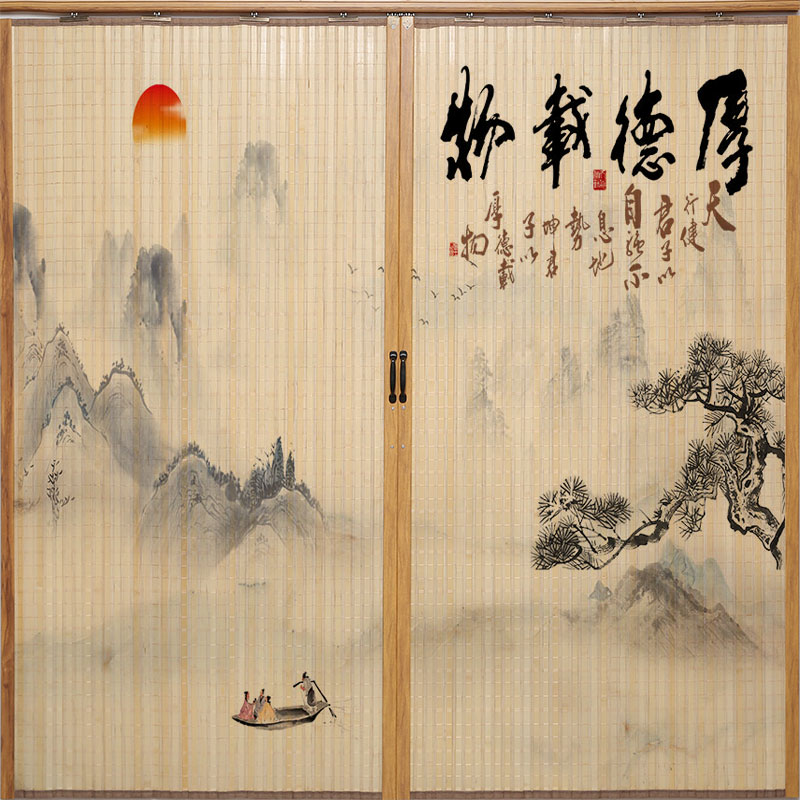 厚德載物
天
行健
君子以
自強不
息地
勢
坤君
子以
厚德載
物